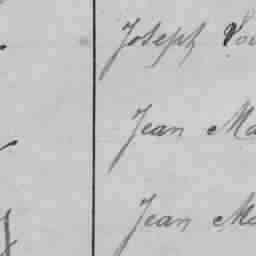 Joseph Lou
Jean Ma
Jean Ma